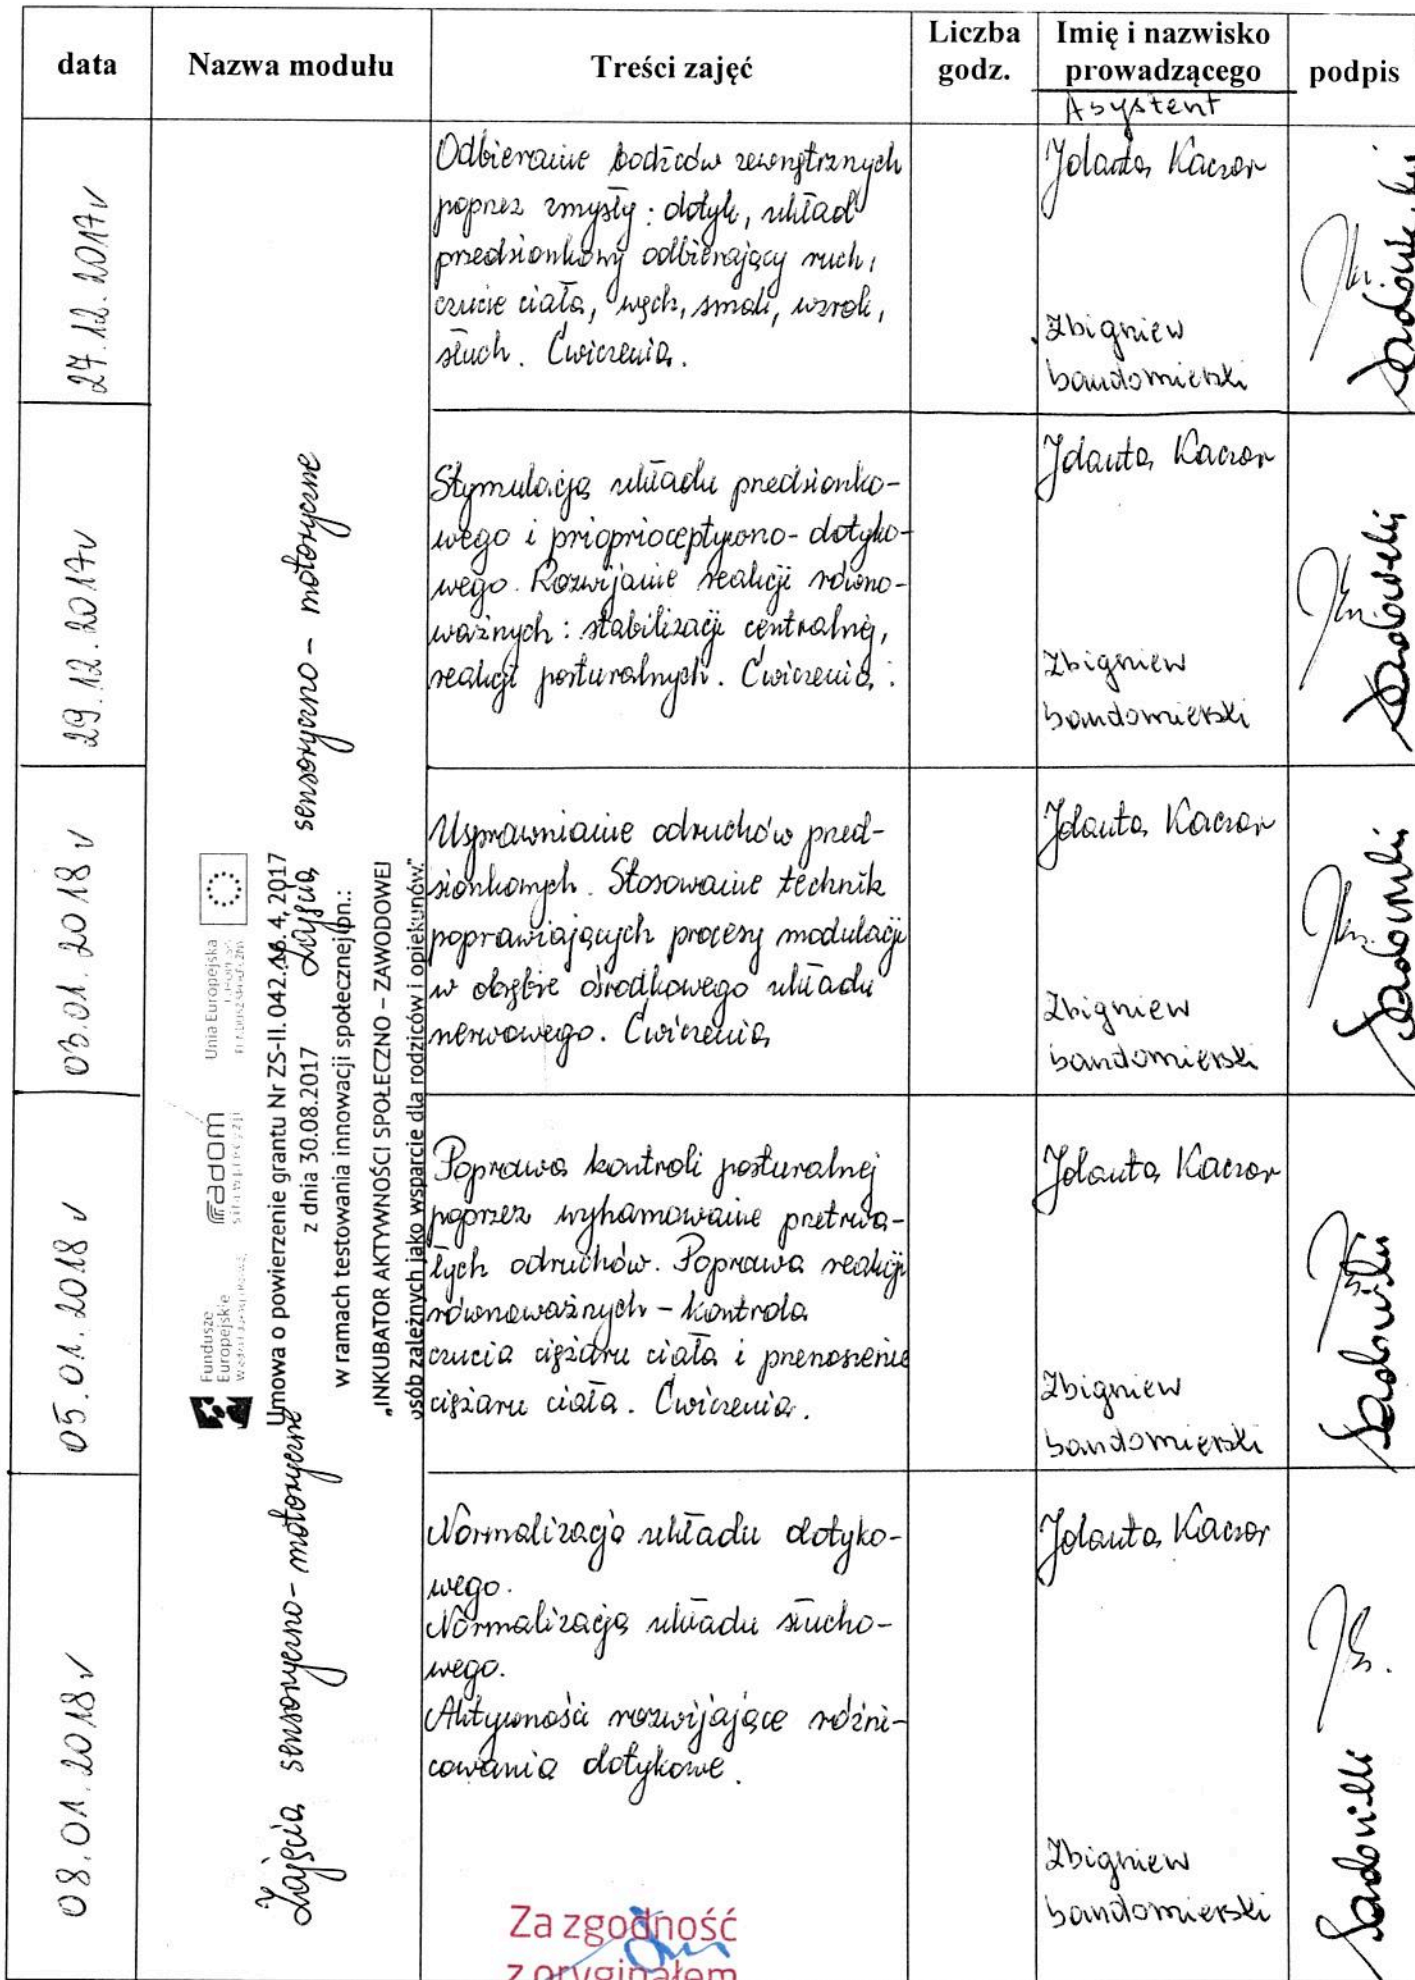 data
Nazwa modułu
Treści zajęć
Liczba
godz.
Imię i nazwisko
prowadzącego
Asystent
podpis
27.12.2017r
Odbieranie bodźców zewnętrznych
poprzez zmysły: dotyk, układ
przedsionkowy odbierający ruch,
czucie ciała, węch, smak, wzrok,
słuch. Ćwiczenia.
Jolanta Kaczor
Zbigniew
Sandomierski
29.12.2017r
Stymulacja układu przedsionko-
wego i prioprioceptywno-dotyko-
wego. Rozwijanie reakcji równo-
ważnych: stabilizacji centralnej,
reakcji posturalnych. Ćwiczenia.
Jolanta Kaczor
Zbigniew
Sandomierski
03.01.2018r
Usprawnianie odruchów przed-
sionkowych. Stosowanie technik
poprawiających procesy modulacji
w obrębie ośrodkowego układu
nerwowego. Ćwiczenia
Jolanta Kaczor
Zbigniew
Sandomierski
05.01.2018r
Poprawa kontroli posturalnej
poprzez wyhamowanie przetrwa-
łych odruchów. Poprawa reakcji
równoważnych - kontrola
czucia ciężaru ciała i przenoszenie
ciężaru ciała. Ćwiczenia.
Jolanta Kaczor
Zbigniew
Sandomierski
08.01.2018r
Normalizacja układu dotyko-
wego.
Normalizacja układu słucho-
wego.
Aktywności rozwijające różni-
cowania dotykowe.
Jolanta Kaczor
Zbigniew
Sandomierski
Zajęcia sensoryczno-motoryczne
Zajęcia sensoryczno-motoryczne
Fundusze
Europejskie
Radom
siła w precyzji
Unia Europejska
Umowa o powierzenie grantu Nr ZS-II. 042. 4, 2017
z dnia 30.08.2017
w ramach testowania innowacji społecznej pn.:
„INKUBATOR AKTYWNOŚCI SPOŁECZNO – ZAWODOWEJ
osób zależnych jako wsparcie dla rodziców i opiekunów."
Za zgodność
z oryginałem